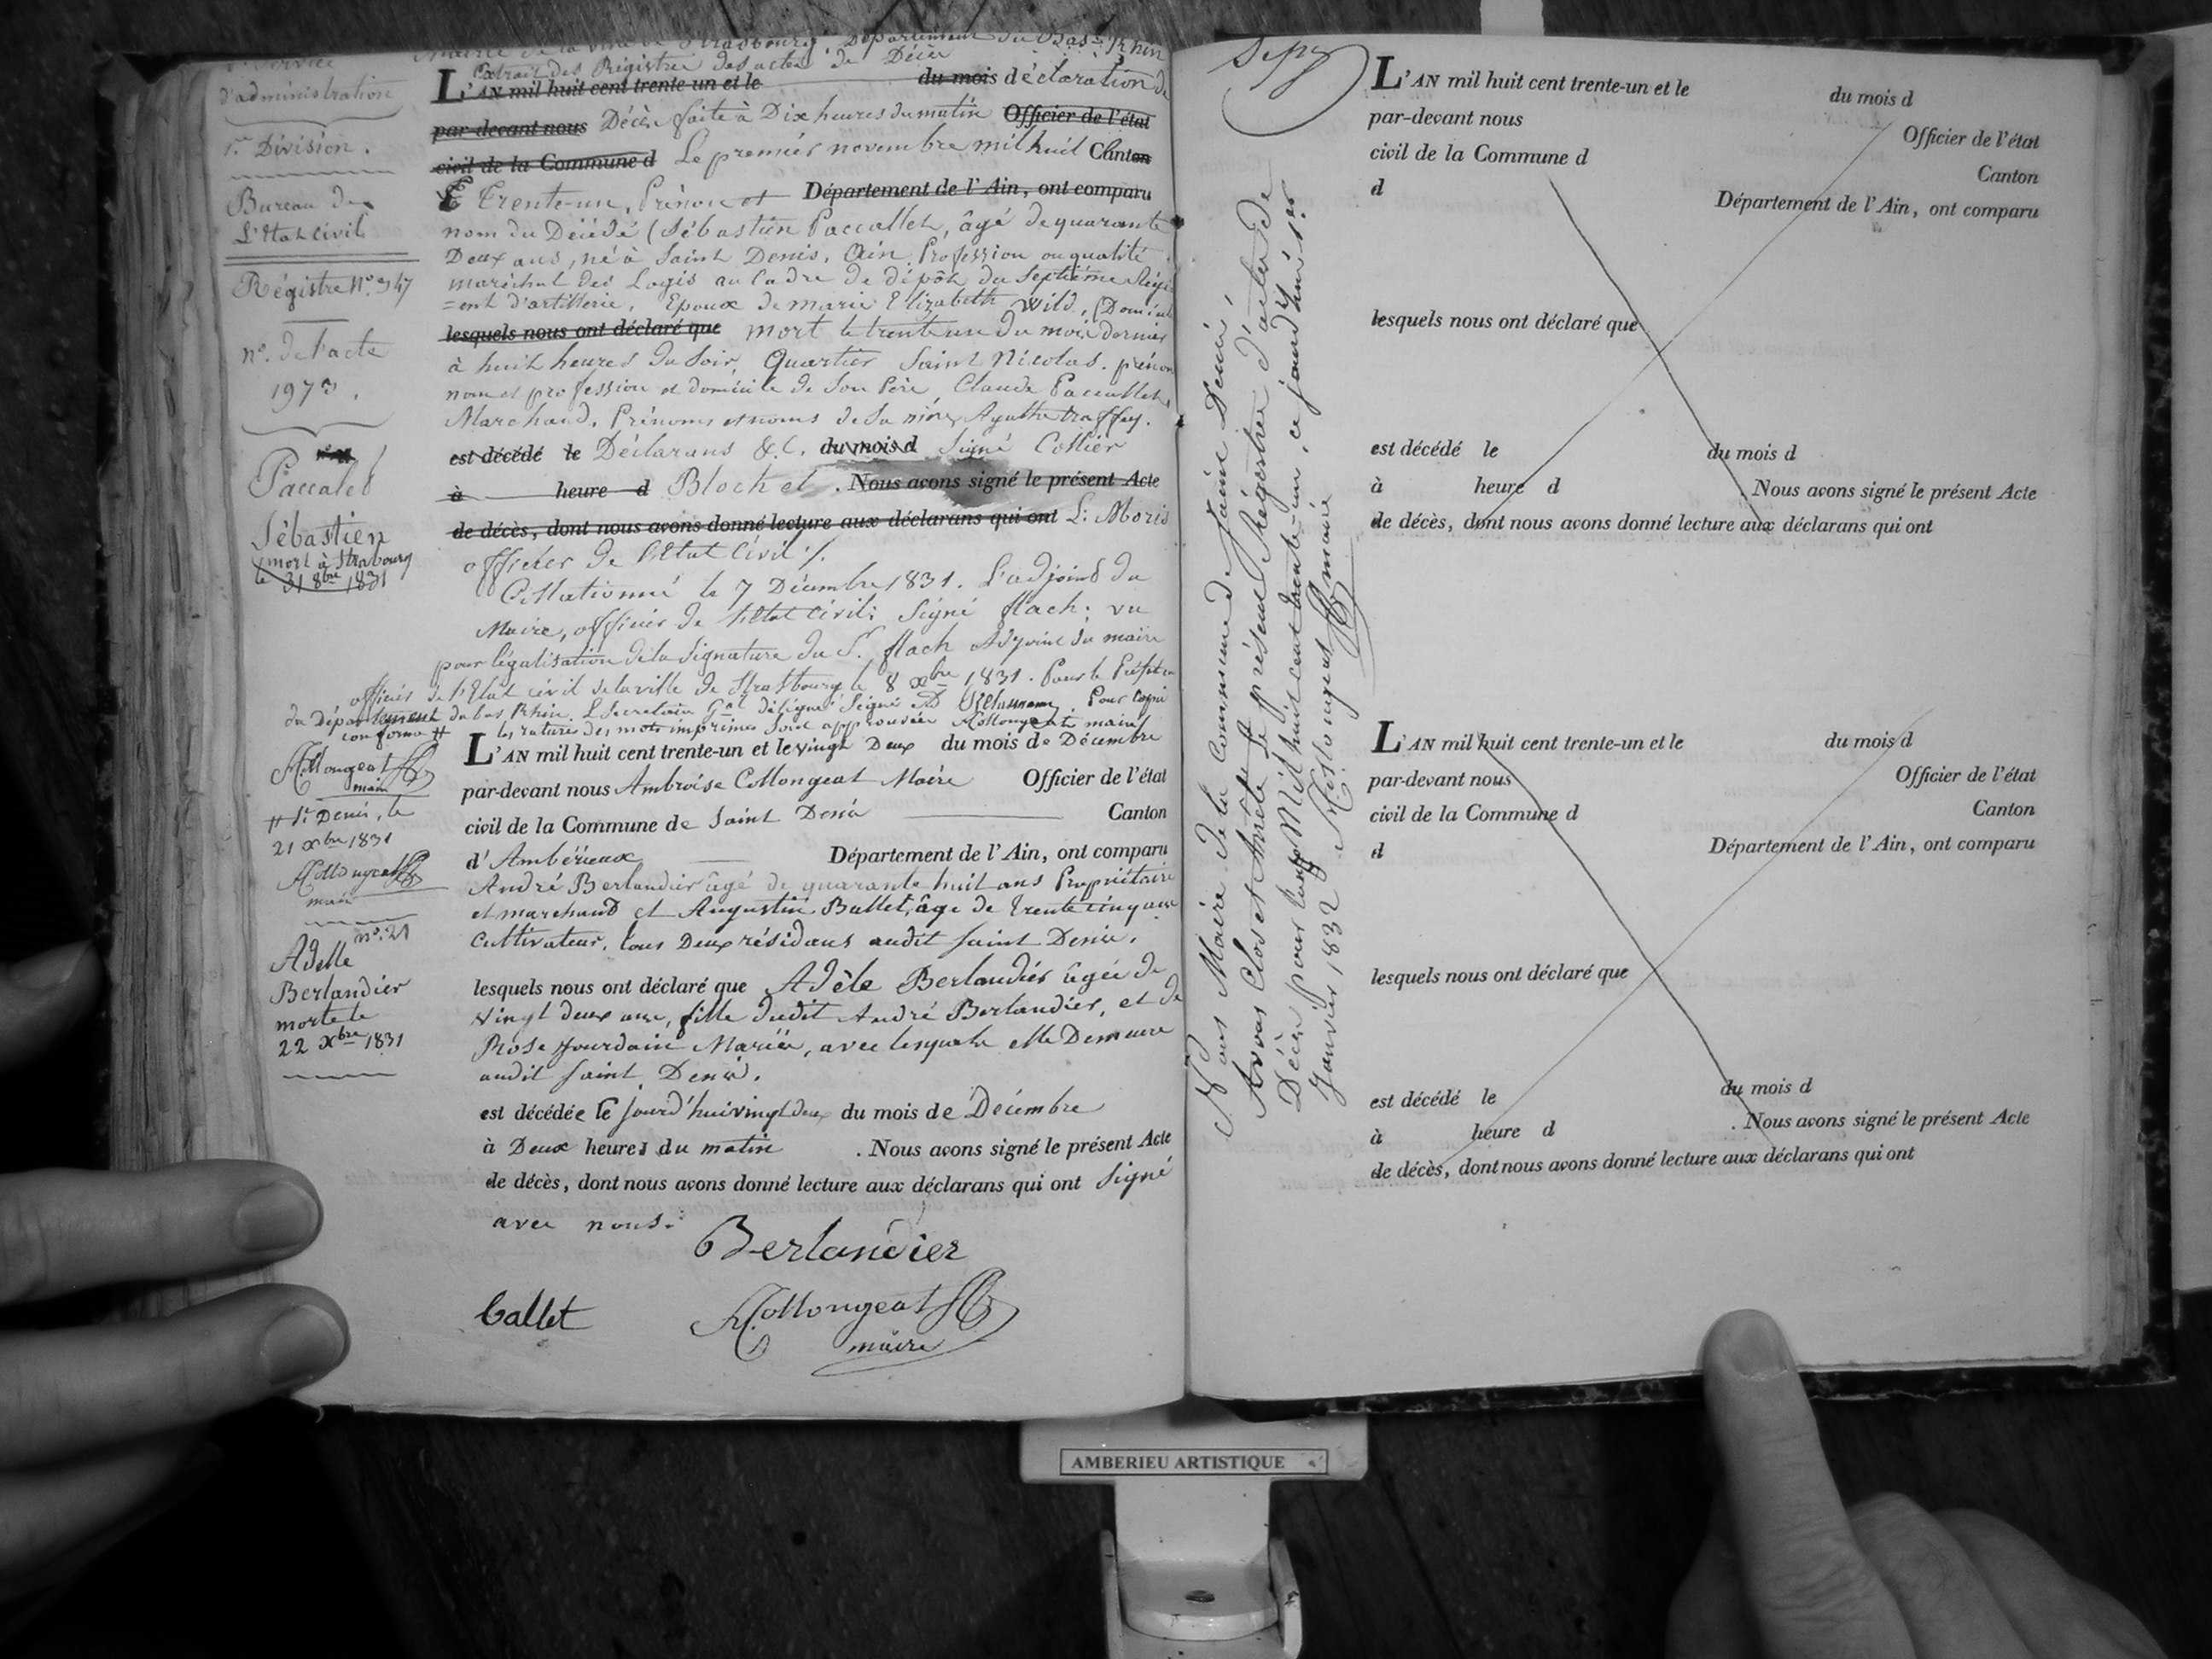 Mairie de la ville de Strasbourg, Département du Bas-Rhin
Extrait des Régistres des actes de Décès
d'administration
1.re Division.
Bureau de
L'Etat civil
Régistre N.o
n.o de l'acte
1973.
Paccalet
Sébastien
mort à Strasbourg
le 31 8bre 1831
L'AN mil huit cent trente-un et le du mois déclaration de
par-devant nous Décès faite à Dix heures du matin Officier de l'état
civil de la Commune d Le premier novembre mil huit Canton
Trente-un, Prénom et Département de l'Ain, ont comparu
nom du Décédé (Sébastien Paccallet, âgé de quarante
Deux ans, né à Saint Denis, Ain, Profession ou qualité
maréchal des Logis au Cadre de dépôt du Septième Régi
=ent d'artillerie, Epoux de marie Elizabeth Wild, (Domicile
lesquels nous ont déclaré que mort le trente un du mois dernier
à huit heures du soir, Quartier Saint Nicolas. prénom
nom et profession et domicile de son Père, Claude Paccallet,
Marchand, Prénoms et noms de sa mère, Agathe traffey.
est décédé le Déclarans &.C. du mois d Signé Collier
à heure d Blochel. Nous avons signé le présent Acte
de décès, dont nous avons donné lecture aux déclarans qui ont L: Moris
officier de l'Etat Civil ./.
Collationné le 7 Décembre 1831. L'adjoint du
Maire, officier de l'Etat Civil: Signé flach: vu
pour légalisation de la Signature du S.r flach Adjoint du maire
officier de l'Etat civil de la ville de Strasbourg le 8 xbre 1831. Pour le Préfet
du Département du bas Rhin. L Secretaire G.al délégué Signé Pour Copie
conforme # les ratures des mots imprimés sont approuvées Collongeat maire
Collongeat
maire
# St Denis, le
21 xbre 1831
Collongeat
maire
n.o 21
Adelle
Berlandier
morte le
22 xbre 1831
L'AN mil huit cent trente-un et le vingt Deux du mois de Décembre
par-devant nous Ambroise Collongeat Maire Officier de l'état
civil de la Commune de Saint Denis Canton
d'Ambérieux Département de l'Ain, ont comparu
André Berlandier âgé de quarante huit ans Propriétaire
et marchand et Augustin Ballet, âgé de trente cinq ans
Cultivateur, tous Deux résidans audit Saint Denis.
lesquels nous ont déclaré que Adèle Berlandier âgée de
vingt deux ans, fille dudit André Berlandier, et de
Rose Jourdain Mariés, avec lesquels elle Demeure
audit Saint Denis.
est décédée le jourd'hui vingt deux du mois de Décembre
à Deux heures du matin . Nous avons signé le présent Acte
de décès, dont nous avons donné lecture aux déclarans qui ont Signé
avec nous.
Berlandier
Ballet
Collongeat
maire
Sept
Nous Maire de la Commune de Saint Denis,
Avons Clos et Arrêté le présent Régistre d'actes de
Décès pour l'an Mil huit cent trente-un, ce jourd'hui 1er
Janvier 1832 Collongeat maire
L'AN mil huit cent trente-un et le du mois d
par-devant nous Officier de l'état
civil de la Commune d Canton
d Département de l'Ain, ont comparu
lesquels nous ont déclaré que
est décédé le du mois d
à heure d . Nous avons signé le présent Acte
de décès, dont nous avons donné lecture aux déclarans qui ont
L'AN mil huit cent trente-un et le du mois d
par-devant nous Officier de l'état
civil de la Commune d Canton
d Département de l'Ain, ont comparu
lesquels nous ont déclaré que
est décédé le du mois d
à heure d . Nous avons signé le présent Acte
de décès, dont nous avons donné lecture aux déclarans qui ont
AMBERIEU ARTISTIQUE